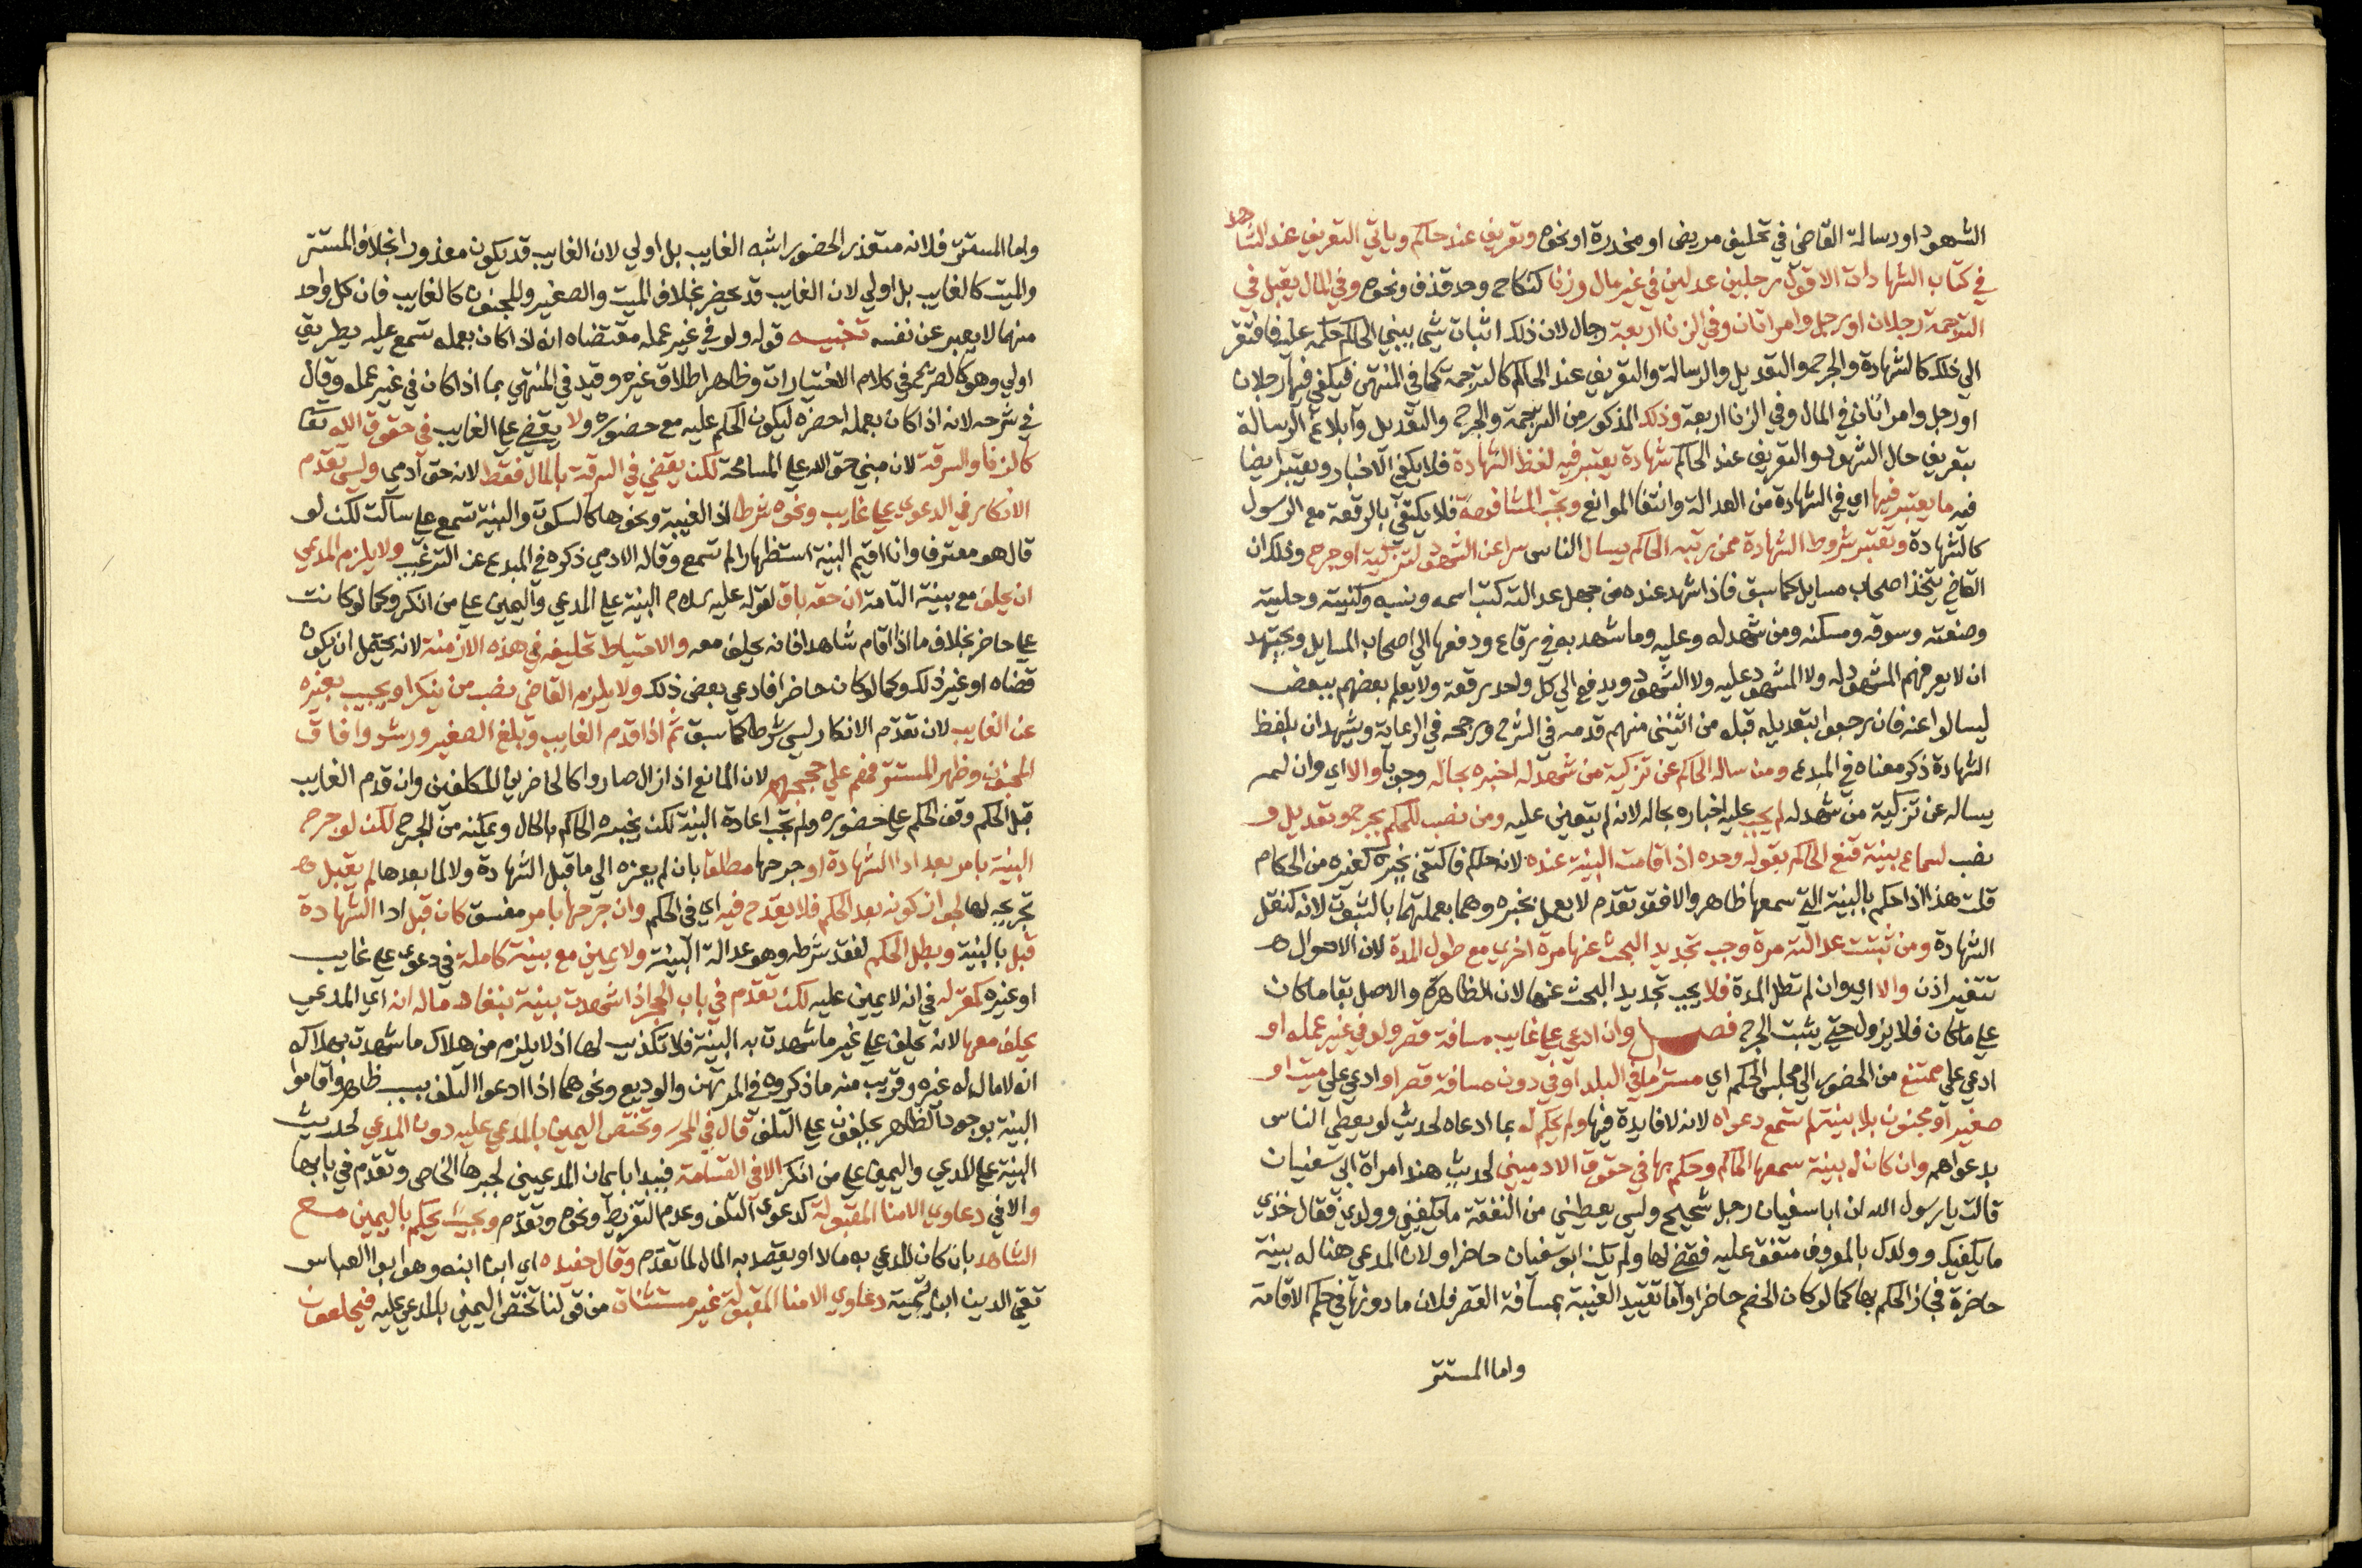 الشهود او رسالة القاضي في تحليف مريض او مخدرة او نحوه وتعريف عند حاكم وياتي التعريف عند الشاهد
في كتاب الشهادات الا قول رجلين عدلين في غير مال وزنا كنكاح وحد قذف ونحوه وفي المال يقبل في
الترجمة رجلان او رجل وامراتان وفي الزنا اربعة رجال لان ذلك اثبات شي يبني الحاكم حكمه عليه فافتقر
الي ذلك كالشهادة والجرح والتعديل والرسالة والتعريف عند الحاكم كالترجمة كما في المنتهى فيكفي فيها رجلان
او رجل وامراتان في المال وفي الزنا اربعة وذلك المذكور من الترجمة والجرح والتعديل وابلاغ الرسالة
بتعريف حال الشهود والتعريف عند الحاكم شهادة يعتبر فيه لفظ الشهادة فلا يكفي الاخبار ويعتبر ايضا
فيه ما يعتبر فيها اي في الشهادة من العدالة وانتفا الموانع وتجب المشافهة فلا يكتفى بالرقعة مع الرسول
كالشهادة وتعتبر شروط الشهادة ممن يرتبه الحاكم يسال الناس سرا عن الشهود لتزكية او جرح وذلك ان
القاضي يتخذ اصحاب مسايل كما سبق فاذا شهد عنده من جهل عدالته كتب اسمه ونسبه وكنيته وحليته
وصنعته وسوقه ومسكنه ومن شهد له وعليه وما شهد به في رقاع ودفعها الي اصحاب المسايل ويجتهد
ان لا يعرفهم المشهود له ولا المشهود عليه ولا الشهود ويدفع الي كل واحد رقعة ولا يعلم بعضهم ببعض
ليسالوا عنه فان رجعوا بتعديله قبله من اثنين منهم قدمه في الشرح ورجحه في الرعاية ويشهدان بلفظ
الشهادة ذكر معناه في المبدع ومن ساله الحاكم عن تزكية من شهد له اخبره بحاله وجوبا والا اي وان لم
يساله عن تزكية من شهد له لم يجب عليه اخباره بحاله لانه لم يتعين عليه ومن نصب للحكم بجرح وتعديل و
نصب لسماع بينة قنع الحاكم بقوله وحده اذا قامت البينة عنده لانه حاكم فاكتفي بخبره كغيره من الحكام
قلت هذا اذا حكم بالبينة التي سمعها ظاهر والا فقد تقدم لا يعمل بخبره وهما بعملهما بالثبوت لانه كنقل
الشهادة ومن ثبتت عدالته مرة وجب تجديد البحث عنها مرة اخري مع طول المدة لان الاحوال
تتغير اذن والا اي وان لم تطل المدة فلا يجب تجديد البحث عنها لان الظاهر والاصل بقا ما كان
علي ما كان فلا يزول حتي يثبت الجرح فصل وان ادعي علي غايب مسافة قصر ولو في غير عمله او
ادعي علي ممتنع من الحضور الي مجلس الحكم اي مستتر اما في البلد او في دون مسافة قصر او ادعي علي ميت او
صغير او مجنون بلا بينة لم تسمع دعواه لانه لا فايدة فيها ولم يحكم له بما ادعاه لحديث لو يعطي الناس
بدعواهم وان كان له بينة سمعها الحاكم وحكم بها في حقوق الادميين لحديث هند امراة ابي سفيان
قالت يا رسول الله ان ابا سفيان رجل شحيح وليس يعطيني من النفقة ما يكفيني وولدي فقال خذي
ما يكفيك وولدك بالمعروف متفق عليه فقضي لها ولم يكن ابو سفيان حاضرا ولان المدعي هنا له بينة
حاضرة فجاز الحكم بها كما لو كان الخصم حاضرا واما تقييد الغيبة بمسافة القصر فلان ما دونها في حكم الاقامة
واما المستتر
واما المستتر فلانه متعذر الحضور اشبه الغايب بل اولي لان الغايب قد يكون معذورا بخلاف المستتر
والميت كالغايب بل اولي لان الغايب قد يحضر بخلاف الميت والصغير والمجنون كالغايب فان كل واحد
منهما لا يعبر عن نفسه تنبيه قوله ولو في غير عمله مقتضاه انه اذا كان بعمله تسمع عليه بطريق
اولي وهو كالصريح في كلام الاختيارات وظاهر اطلاق غيره وقيد في المنتهي بما اذا كان في غير عمله وقال
في شرحه لانه اذا كان بعمله احضره ليكون الحكم عليه مع حضوره ولا يقضي علي الغايب في حقوق الله تعالي
كالزنا والسرقة لان مبني حق الله علي المسامحة لكن يقضي في السرقة بالمال فقط لانه حق آدمي وليس تقدم
الانكار في الدعوي علي غايب ونحوه شرطا اذ الغيبة ونحوها كالسكوت والبينة تسمع علي ساكت لكن لو
قال هو معترف وانا اقيم البينة استظهارا لم تسمع وقاله الادمي ذكره في المبدع عن الترغيب ولا يلزم المدعي
ان يحلف مع بينته التامة ان حقه باق لقوله عليه السلام البينة علي المدعي واليمين علي من انكر وكما لو كانت
علي حاضر بخلاف ما اذا اقام شاهدا فانه يحلف معه والاحتياط تحليفه في هذه الازمنة لانه يحتمل ان يكون
قضاه او غير ذلك وكما لو كان حاضرا فادعي بعض ذلك ولا يلزم القاضي نصب من ينكر او يجيب بغيره
عن الغايب لان تقدم الانكار ليس شرطا كما سبق ثم اذا قدم الغايب وبلغ الصغير ورشد وافاق
المجنون وظهر المستتر فهم علي حججهم لان المانع اذا زال صاروا كالحاضرين المكلفين وان قدم الغايب
قبل الحكم وقف الحكم علي حضوره ولم تجب اعادة البينة لكن يخبره الحاكم بالحال ويمكنه من الجرح لكن لو جرح
البينة بامر بعد ادا الشهادة او جرحها مطلقا بان لم يعزه الي ما قبل الشهادة ولا لما بعدها لم يقبل
تجريحه لها لجواز كونه بعد الحكم فلا يقدح فيه اي في الحكم وان جرحها بامر مفسق كان قبل ادا الشهادة
قبل بالبينة وبطل الحكم لفقد شرطه وهو عدالة البينة ولا يمين مع بينة كاملة في دعوي علي غايب
او غيره كمقر له في انه لا يمين عليه لكن تقدم في باب الحجر اذا شهدت بينة بنفاد ماله انه اي المدعي
يحلف معها لانه يحلف علي غير ما شهدت به البينة فلا تكذيب لها اذ لا يلزم من هلاك ما شهدت بهلاكه
انه لا مال له غيره وقريب منه ما ذكروه في المرتهن والوديع ونحوهما اذا ادعوا التلف بسبب ظاهر واقاموا
البينة بوجود الظاهر يحلفون علي التلف قال في المحرر وتختص اليمين بالمدعي عليه دون المدعي لحديث
البينة علي المدعي واليمين علي من انكر الا في القسامة فيبدا بايمان المدعيين لخبرها الخاص وتقدم في بابها
والا في دعاوي الامنا المقبولة كدعوي التلف وعدم التفريط ونحوه وتقدم وبحيث يحكم باليمين مع
الشاهد بان كان المدعي به مالا او يقصد به المال لما تقدم وقال حفيده اي ابن ابنه وهو ابو العباس
تقي الدين ابن تيمية دعاوي الامنا المقبولة غير مستثناة من قولنا تختص اليمين بالمدعي عليه فيحلفون